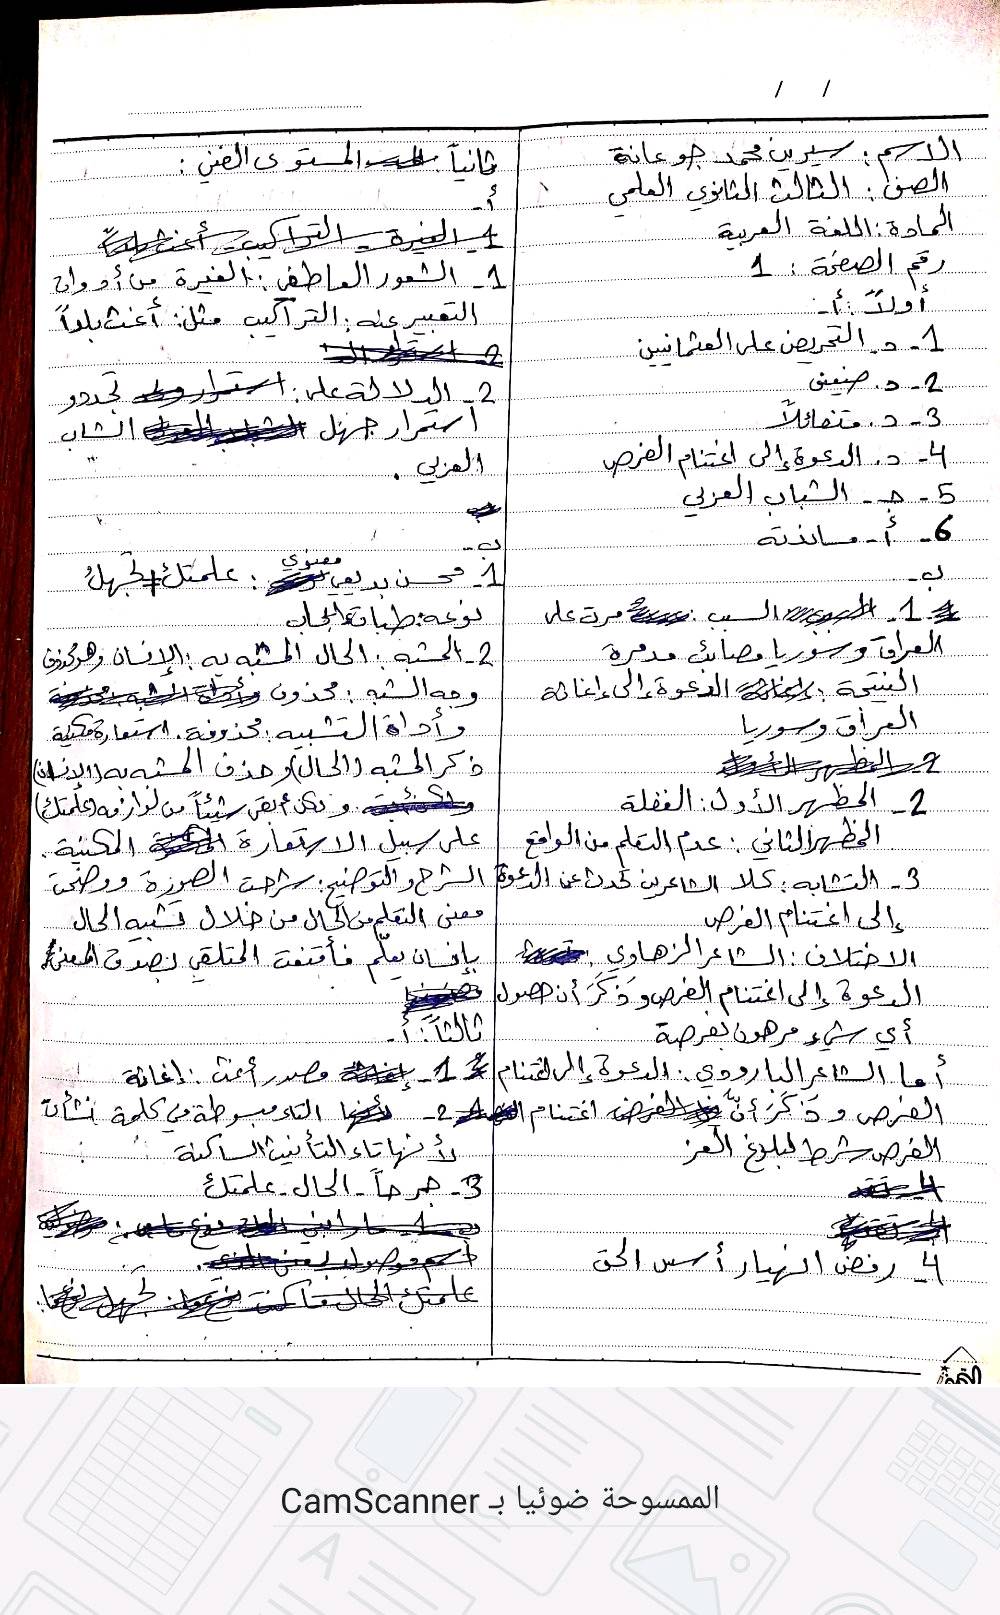 / /
الاسم: سيرين محمد جوعانة
الصف: الثالث الثانوي العلمي
المادة: اللغة العربية
رقم الصفحة: 1
أولاً: أ-
1- د. التحريض على العثمانيين
2- د.
3- د. متفائلاً
4- د. الدعوة إلى اغتنام الفرص
5- ج- الشباب العربي
6- أ- مساندته
ب-
1- السبب: مرت على
العراق وسوريا مصائب مدمرة
النتيجة: الدعوة إلى إغاثة
العراق وسوريا
2- المظهر الأول: الغفلة
المظهر الثاني: عدم التعلم من الواقع
3- التشابه: كلا الشاعرين تحدث عن الدعوة
إلى اغتنام الفرص
الاختلاف: الشاعر الزهاوي:
الدعوة إلى اغتنام الفرص وذَكَرَ أن حصول
أي شيء مرهون بفرصة
أما الشاعر البارودي: الدعوة إلى اغتنام
الفرص وذَكَرَ أنّ اغتنام
الفرص شرط لبلوغ العز
4- رفض انهيار أسس الحق
ثانياً: المستوى الفني:
أ-
1- الشعور العاطفي: الغيرة من أدوات
التعبير عنه: التراكيب مثل: أغث بلداً
2- الدلالة على: تجدد و
استمرار جهل الشاب
العربي.
ب-
1- محسن بديعي معنوي: علمتك + تجهل
نوعه: طباق إيجاب
2- المشبه: الحال المشبه به: الإنسان وهو محذوف
وجه الشبه: محذوف
وأداة التشبيه: محذوفة. استعارة مكنية
ذكر المشبه (الحال) وحذف المشبه به (الإنسان)
و أبقى شيئاً من لوازمه (علمتك)
على سبيل الاستعارة المكنية.
الشرح والتوضيح: شرحت الصورة ووضحت
معنى التعلم من الحال من خلال تشبيه الحال
بإنسان يعلّم فأقنعت المتلقي بصدق المعنى
ثالثاً: أ-
1- مصدر أغث: إغاثة
2- التاء مبسوطة في كلمة نشأت
لأنها تاء التأنيث الساكنة
3- - الحال - علمتك
الممسوحة ضوئيا بـ CamScanner